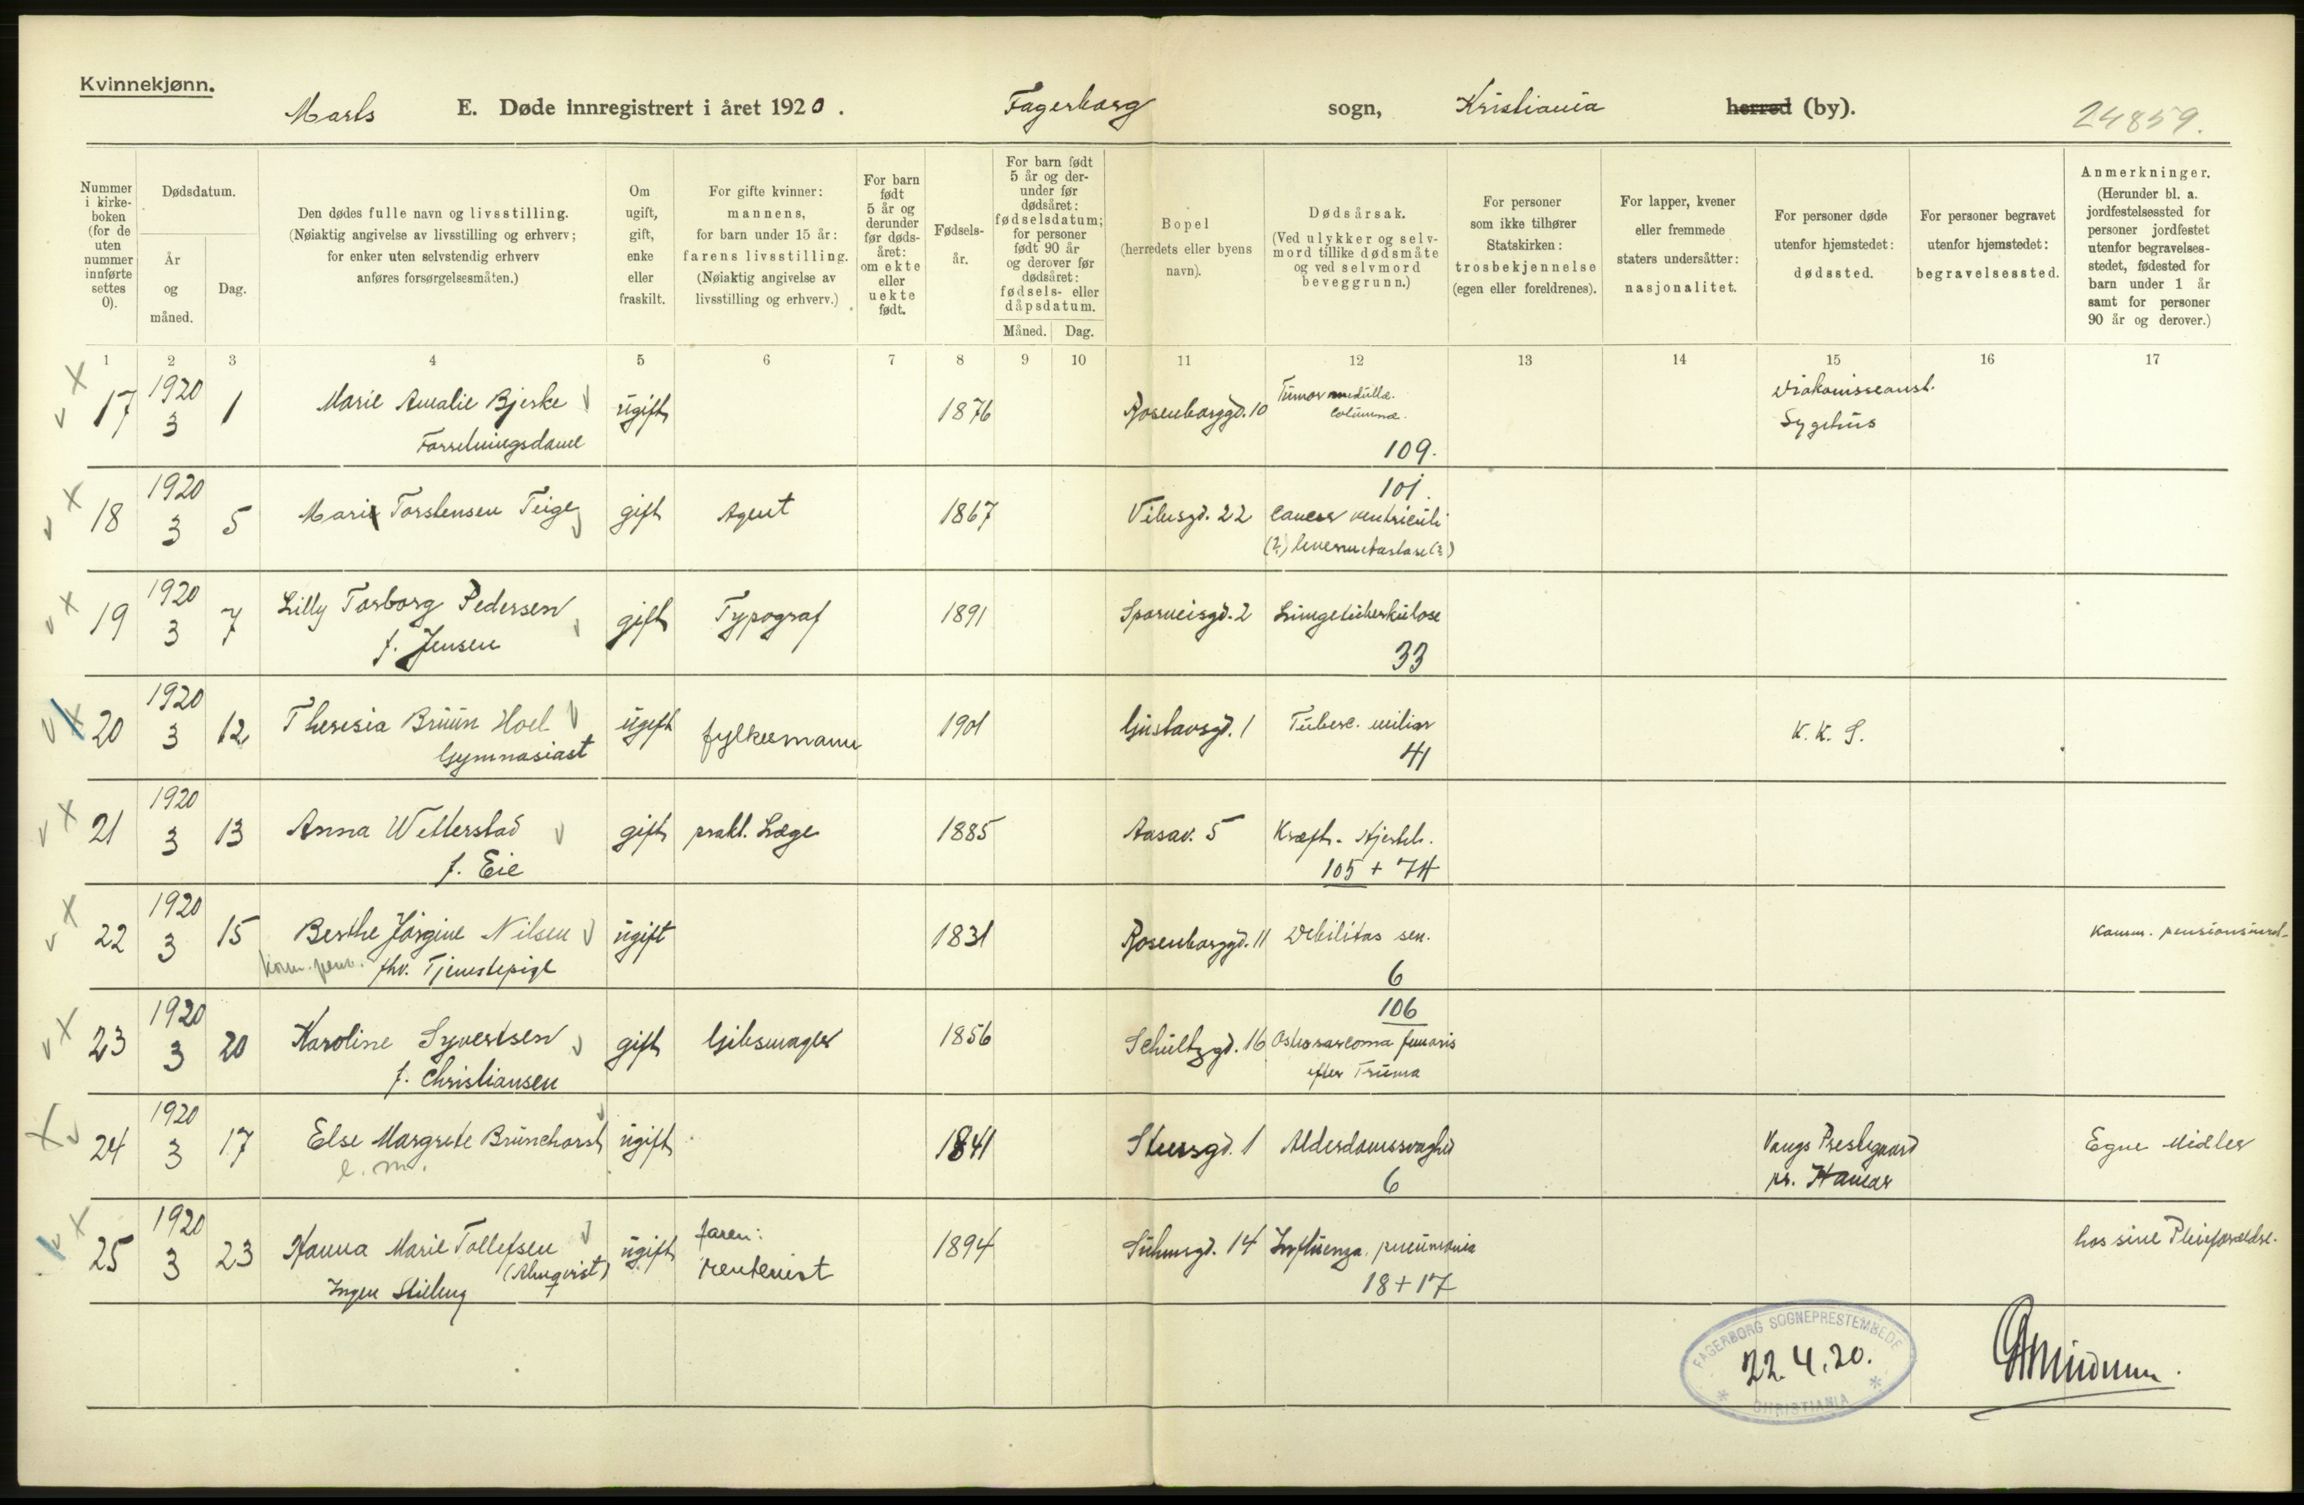 Kvinnekjønn.
Marts E. Døde innregistrert i året 1920. Fagerborg sogn, Kristiania herred (by). 24859.
Nummer i kirkeboken (for de uten nummer innførte settes 0).
Dødsdatum.
År og måned.
Dag.
Den dødes fulle navn og livsstilling.
(Nøiaktig angivelse av livsstilling og erhverv;
for enker uten selvstendig erhverv
anføres forsørgelsesmåten.)
Om ugift, gift, enke eller fraskilt.
For gifte kvinner:
mannens,
for barn under 15 år:
farens livsstilling.
(Nøiaktig angivelse av
livsstilling og erhverv.)
For barn født 5 år og derunder før dødsåret: om ekte eller uekte født.
Fødselsår.
For barn født 5 år og derunder før dødsåret: fødselsdatum; for personer født 90 år og derover før dødsåret: fødsels- eller dåpsdatum.
Måned. Dag.
Bopel
(herredets eller byens navn).
Dødsårsak.
(Ved ulykker og selvmord tillike dødsmåte og ved selvmord beveggrunn.)
For personer som ikke tilhører Statskirken: trosbekjennelse (egen eller foreldrenes).
For lapper, kvener eller fremmede staters undersåtter: nasjonalitet.
For personer døde utenfor hjemstedet: dødssted.
For personer begravet utenfor hjemstedet: begravelsessted.
Anmerkninger.
(Herunder bl. a. jordfestelsessted for personer jordfestet utenfor begravelsesstedet, fødested for barn under 1 år samt for personer 90 år og derover.)
1 2 3 4 5 6 7 8 9 10 11 12 13 14 15 16 17
17 1920 3 1 Marie Amalie Bjerke ugift 1876 Rosenborggd. 10 Tumor medullæ columnæ. 109. Diakonisseanst. Sygehus
Forretningsdame
18 1920 3 5 Marie Torstensen Teige gift Agent 1867 Vibesgd. 22 101. Cancer ventriculi
(?) levermetastase (?)
19 1920 3 7 Lilly Torborg Pedersen gift Typograf 1891 Sporveisgd. 2 Lungetuberkulose
f. Jensen 33
20 1920 3 12 Theresia Bruun Hoel ugift fylkesmann 1901 Gustavsgd. 1 Tuberc. miliar K. K. S.
Gymnasiast 41
21 1920 3 13 Anna Wetterstad gift prakt. Læge 1885 Aasav. 5 Kræft.
f. Eie 105 + 74
22 1920 3 15 Berthe Jørgine Nilsen ugift 1831 Rosenborggd. 11 Debilitas sen.
Kom. pens. fhv. Tjenestepige 6
23 1920 3 20 Karoline Syvertsen gift Gibsmager 1856 Schultzgd. 16 106 Osteosarcoma femoris
f. Christiansen efter Truma
24 1920 3 17 Else Margrete Brunchorst ugift 1841 Stensgd. 1 Alderdomssvaghed Vangs Prestegaard Egne Midler
e. m. 6 pr. Hamar
25 1920 3 23 Hanna Marie Tollefsen ugift faren: 1894 Suhmsgd. 14 Influenza, pneumonia hos sine Pleieforældre.
(Almqvist) rentenist
Ingen Stilling 18 + 17
FAGERBORG SOGNEPRESTEMBEDE
22.4.20.
CHRISTIANIA